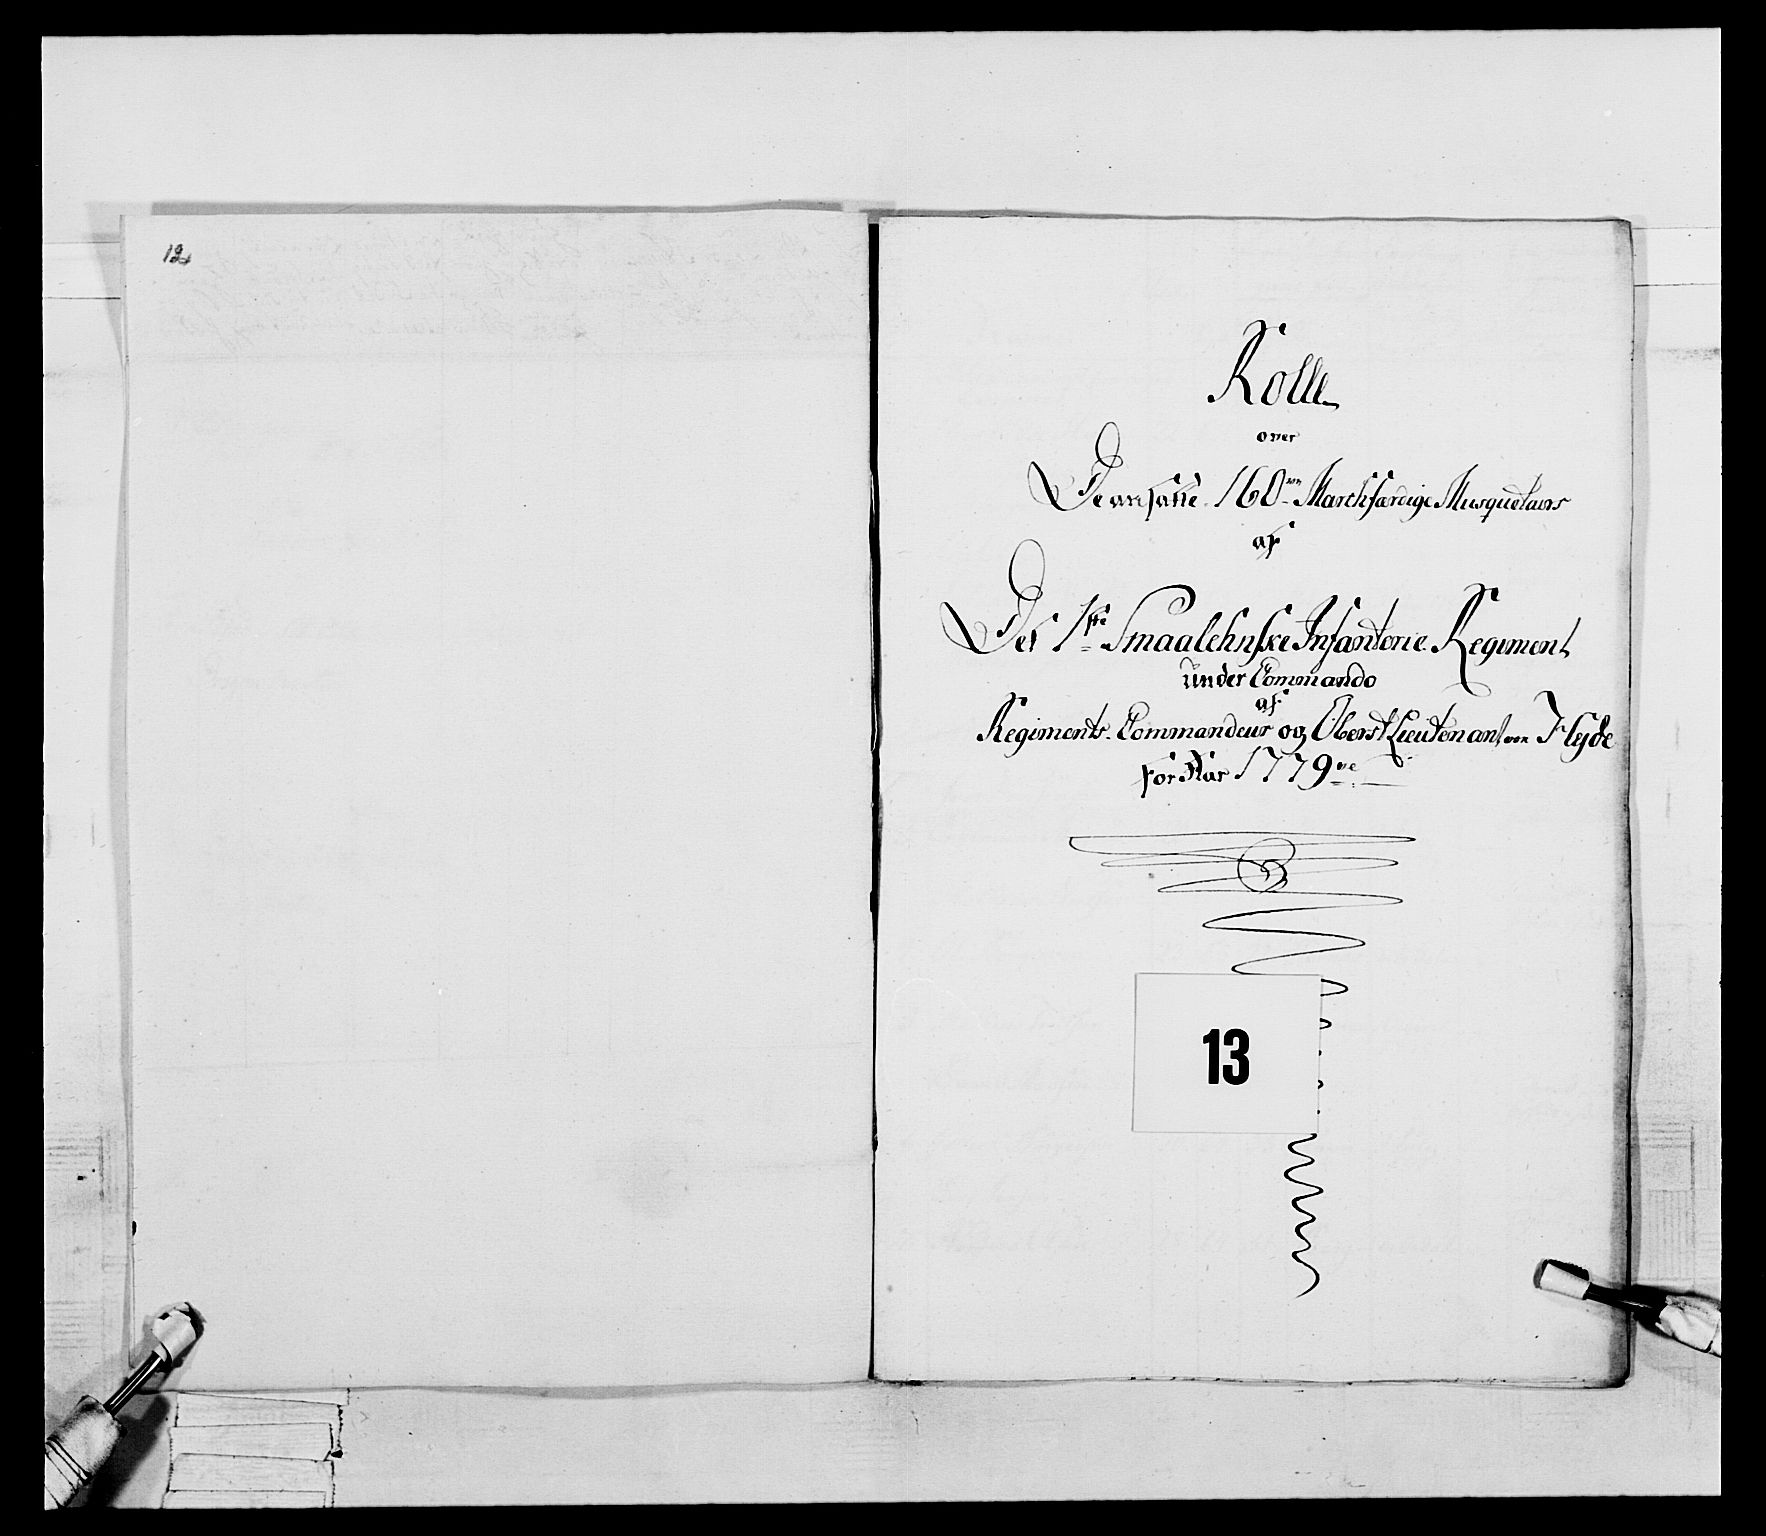 12.
Rolle
over
De ansatte 160 Marchfærdige Musquetairs
af
Det 1ste Smaalehnske Infanterie Regiment
under Commando
af
Regiments Commandeur og Oberst Lieutenant von Hyde
for Aar 1779
13